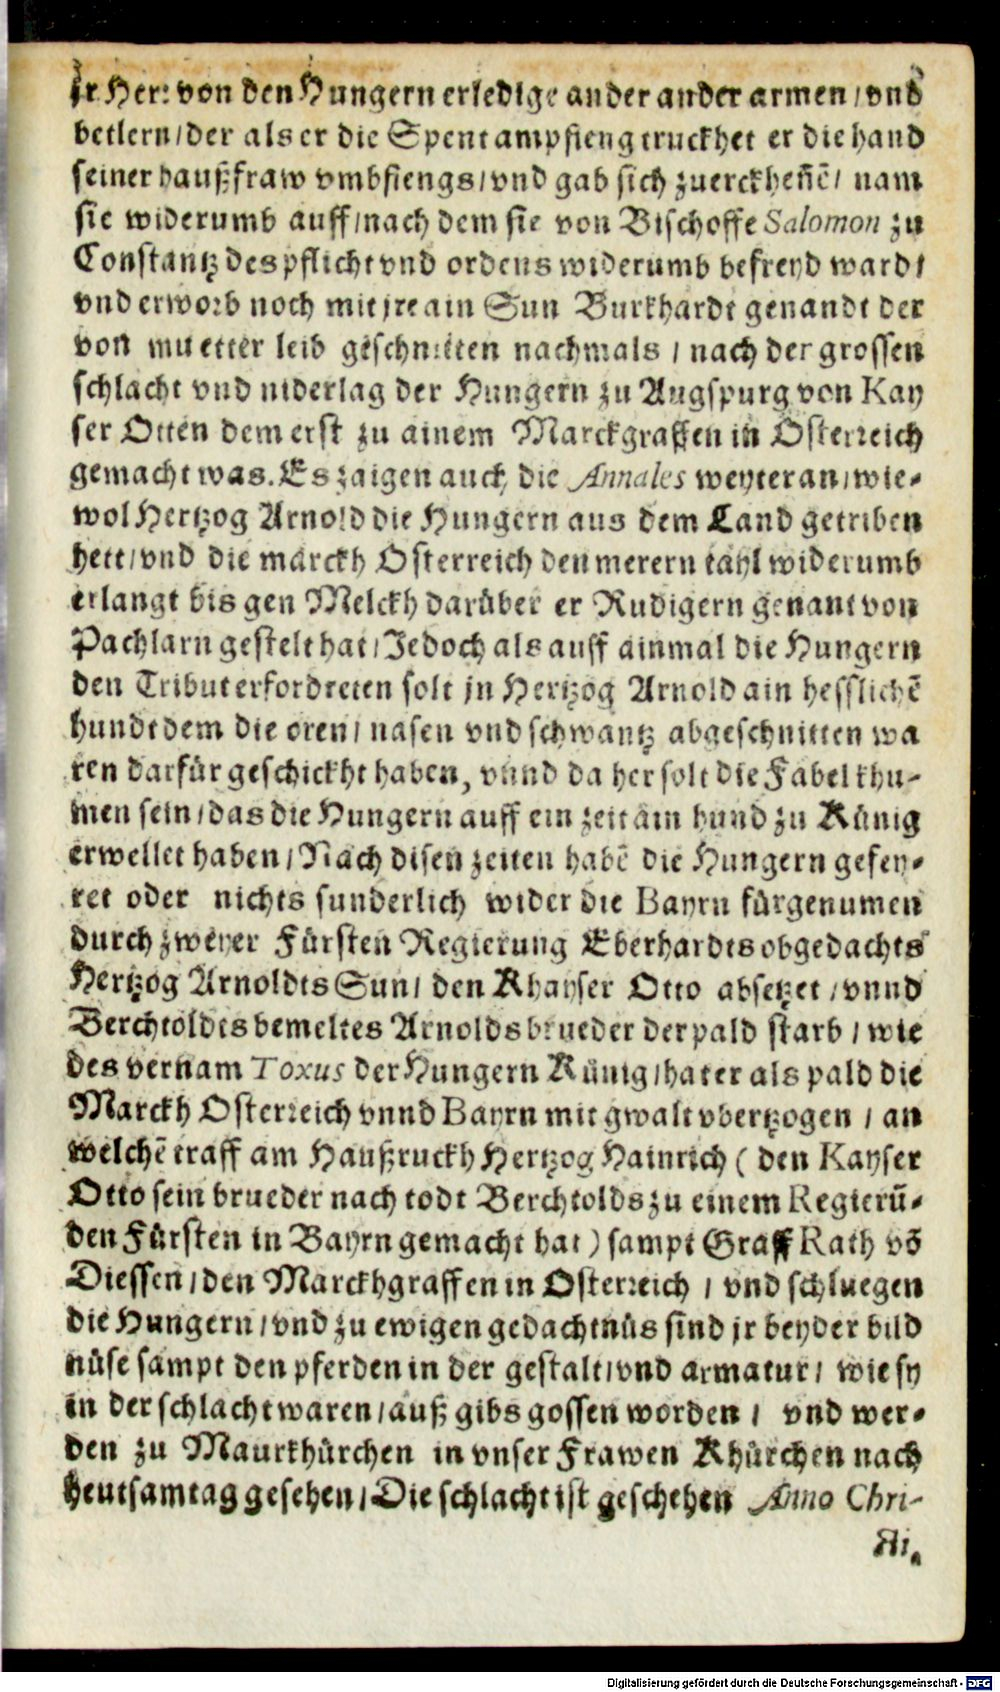 jr Herr von den Hungern erledige ander ander armen / vnd
betlern / der als er die Spent ampfieng truckhet er die hand
seiner haußfraw vmbfiengs / vnd gab sich zuerckheñẽ / nam
sie widerumb auff / nach dem sie von Bischoffe Salomon zu
Constantz des pflicht vnd ordens widerumb befreyd wardt
vnd erworb noch mit jre ain Sun Burkhardt genandt der
von muetter leib geschnitten nachmals / nach der grossen
schlacht vnd niderlag der Hungern zu Augspurg von Kay
ser Otten dem erst zu ainem Marckgraffen in Osterreich
gemacht was. Es zaigen auch die Annales weyter an / wie-
wol Hertzog Arnold die Hungern aus dem Land getriben
hett / vnd die marckh Osterreich den merern tayl widerumb
erlangt bis gen Melckh darüber er Rudigern genant von
Pachlarn gestelt hat / Jedoch als auff ainmal die Hungern
den Tribut erfordreten solt jn Hertzog Arnold ain hesslichẽ
hundt dem die oren / nasen vnd schwantz abgeschnitten wa
ren darfür geschickht haben, vnnd da her solt die Fabel khu-
men sein / das die Hungern auff ein zeit ain hund zu Künig
erwellet haben / Nach disen zeiten habẽ die Hungern gefey-
ret oder nichts sunderlich wider die Bayrn fürgenumen
durch zweyer Fürsten Regierung Eberhardts obgedachts
Hertzog Arnoldts Sun / den Khayser Otto absetzet / vnnd
Berchtoldts bemeltes Arnolds brueder der pald starb / wie
des vernam Toxus der Hungern Künig / hat er als pald die
Marckh Osterreich vnnd Bayrn mit gwalt vbertzogen / an
welchẽ traff am Haußruckh Hertzog Hainrich ( den Kayser
Otto sein brueder nach todt Berchtolds zu einem Regierũ-
den Fürsten in Bayrn gemacht hat ) sampt Graff Rath võ
Diessen / den Marckhgraffen in Osterreich / vnd schluegen
die Hungern / vnd zu ewigen gedachtnüs sind jr beyder bild
nüse sampt den pferden in der gestalt / vnd armatur / wie sy
in der schlacht waren / auß gibs gossen worden / vnd wer-
den zu Maurkhürchen in vnser Frawen Khürchen nach
heutsamtag gesehen / Die schlacht ist geschehen Anno Chri-
sti.
Digitalisierung gefördert durch die Deutsche Forschungsgemeinschaft - DFG